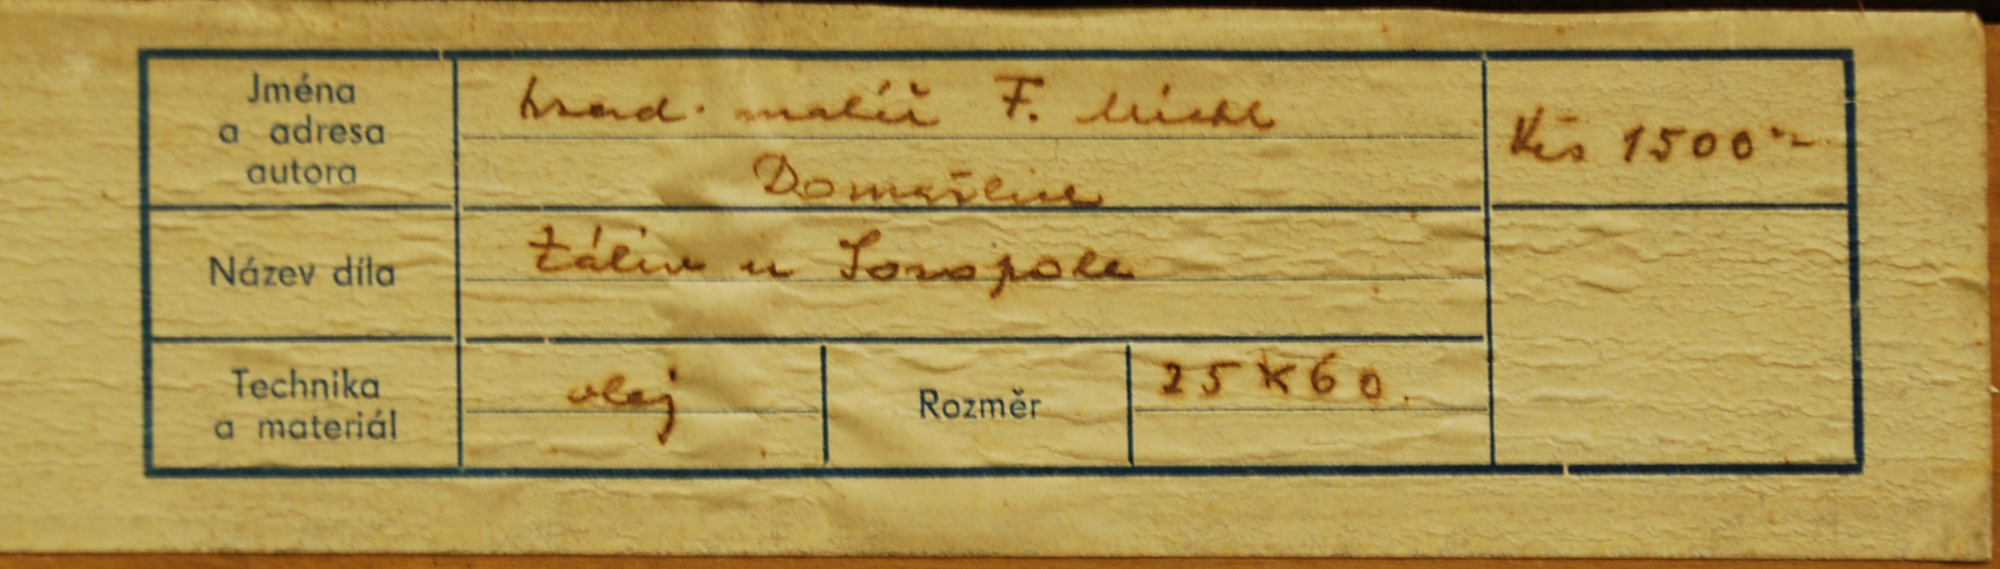 Jména
a adresa
autora
akad. malíř F. Michl
Domažlice
Kčs 1500
Název díla
Záliv u Sozopole
Technika
a materiál
olej
Rozměr
25 x 60.